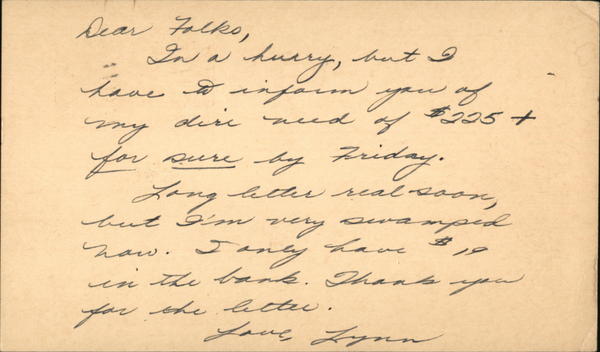 Dear Folks,
In a hurry, but I
have to inform you of
my dire need of $225 +
for sure by Friday.
Long letter real soon,
but I'm very swamped
now. I only have $19
in the bank. Thank you
for the letter.
Love, Lynn